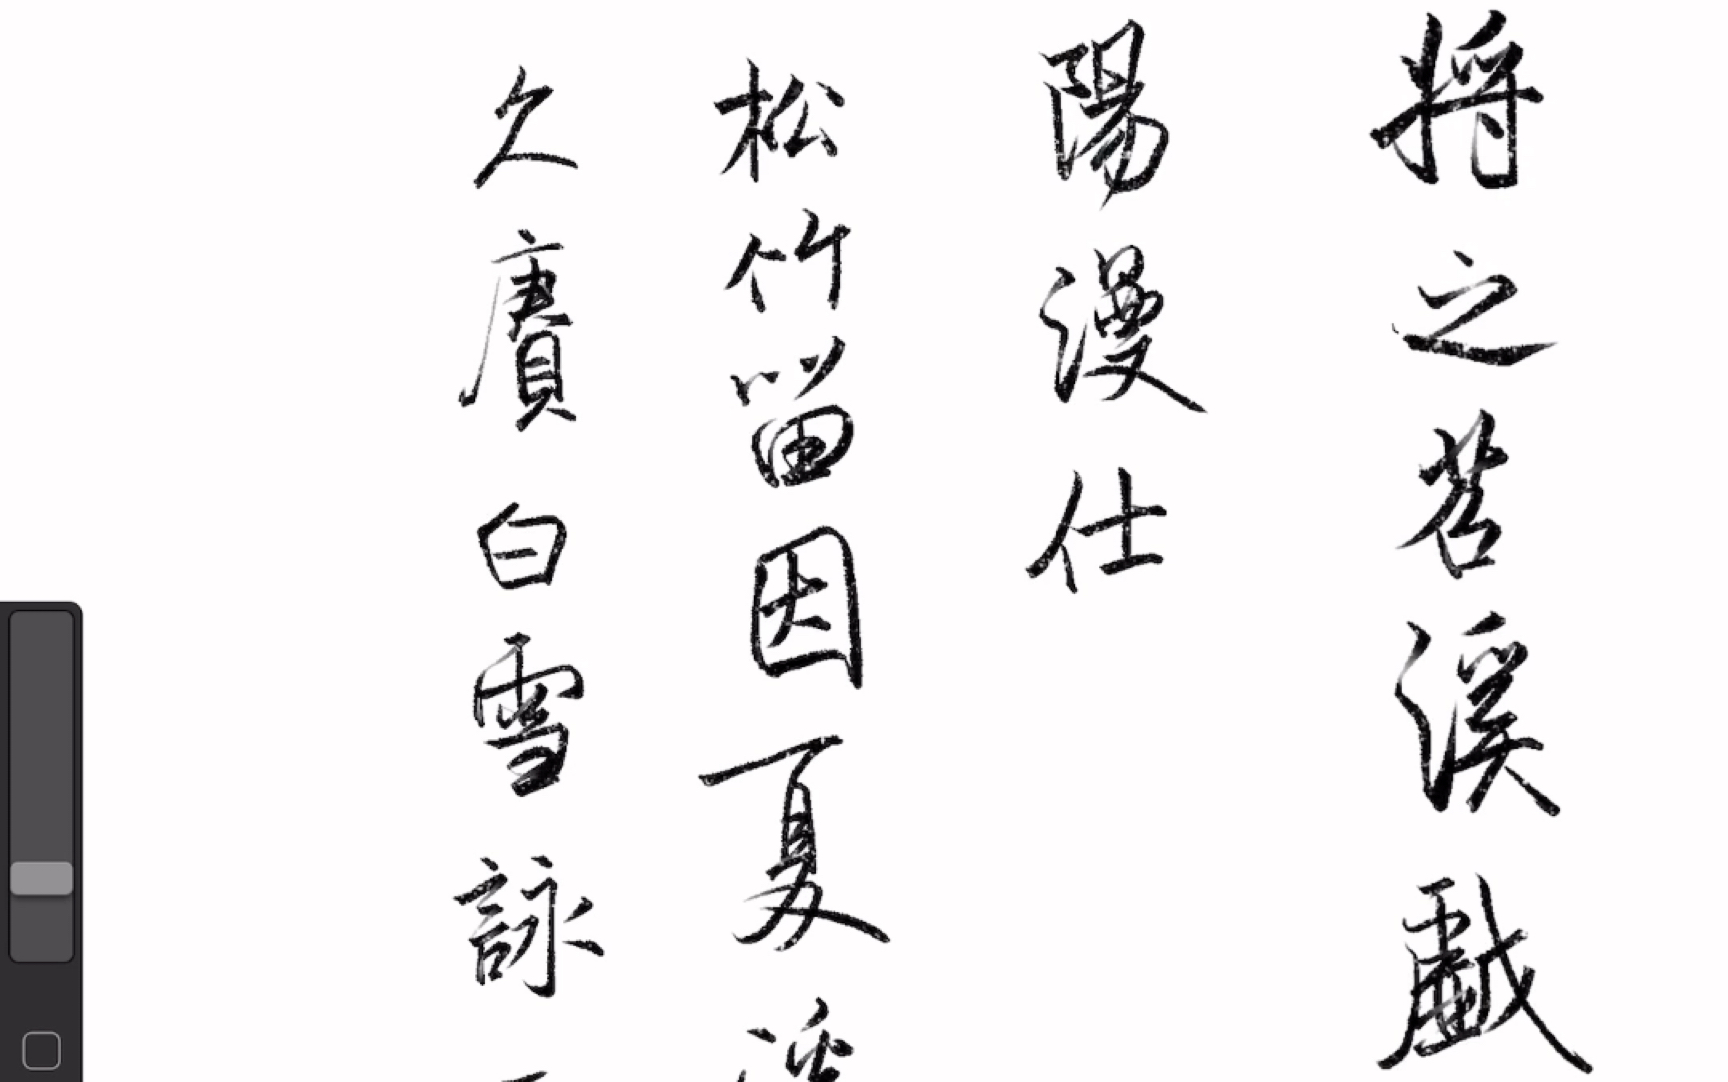 將之苕溪戲
陽漫仕
松竹留因夏
久賡白雪詠